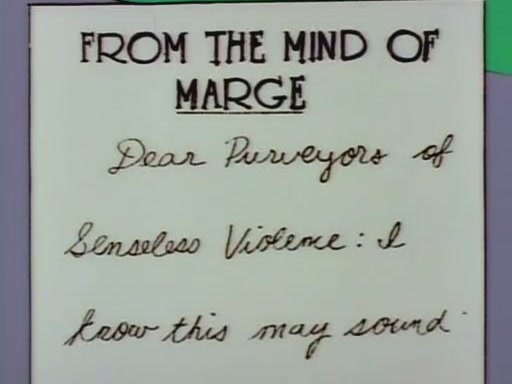 FROM THE MIND OF
MARGE
Dear Purveyors of
Senseless Violence: I
know this may sound